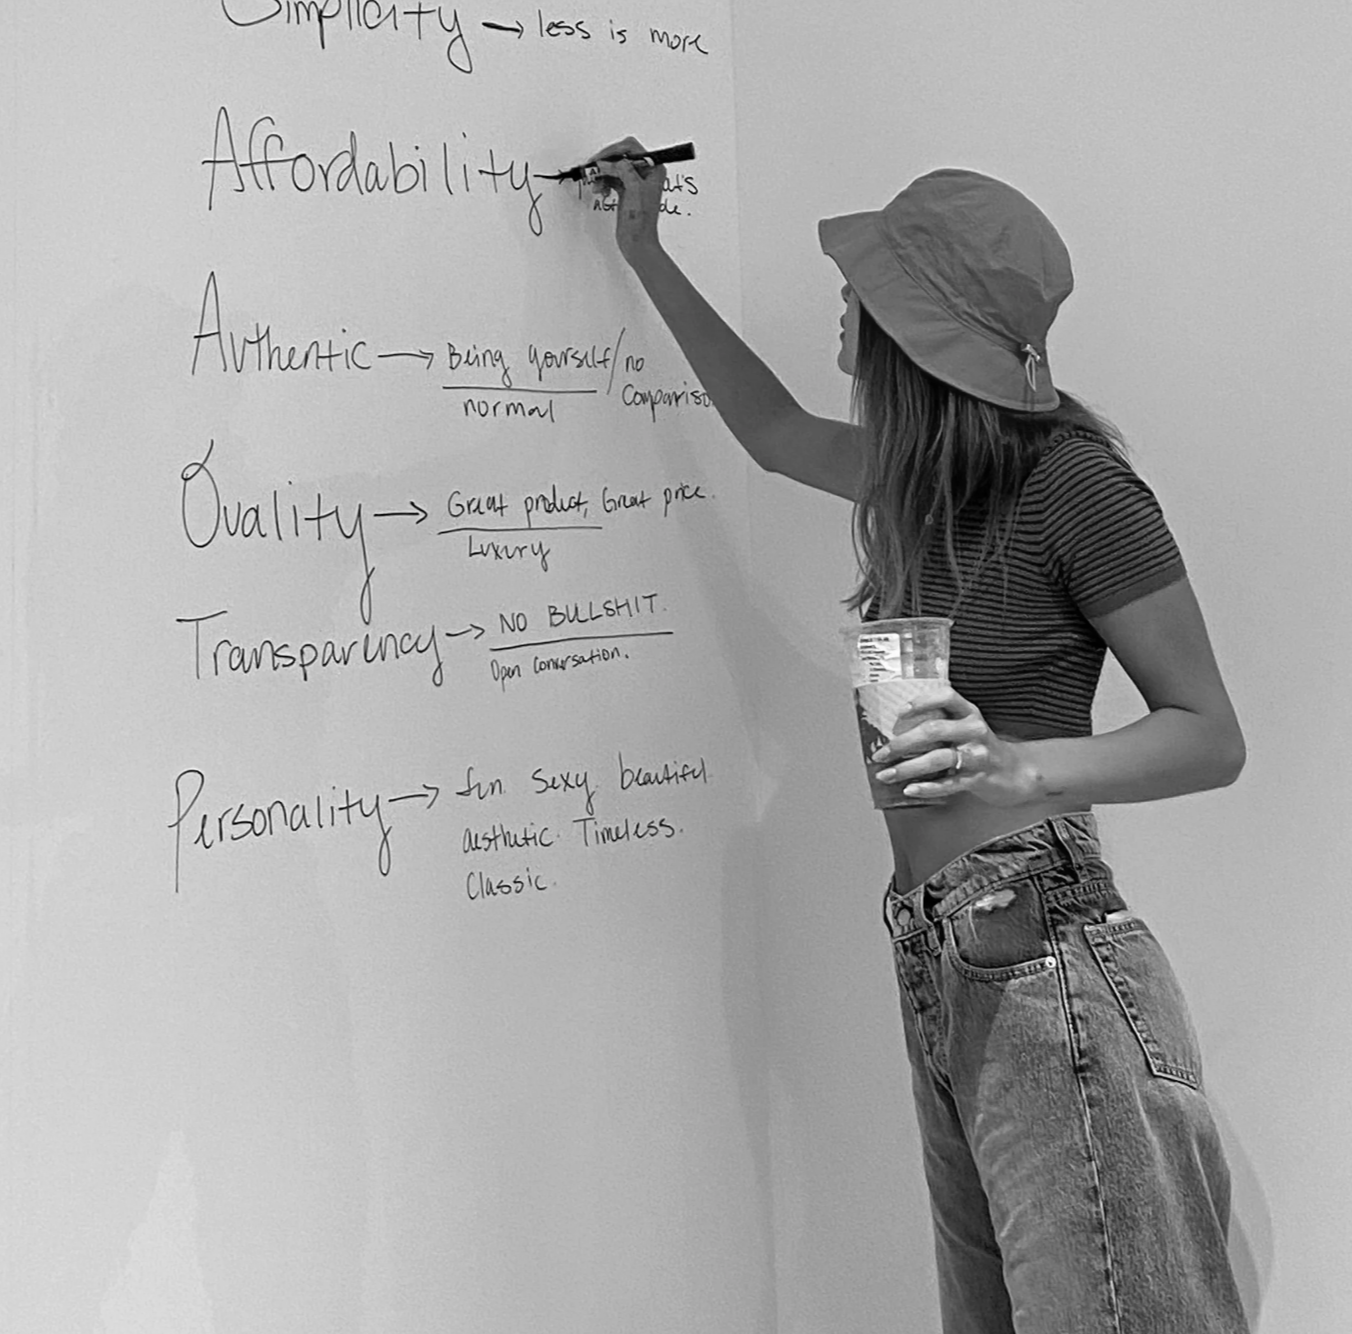 Simplicity → less is more
Affordability →
Authentic → Being yourself/no
normal comparison
Quality → Great product, Great price.
Luxury
Transparency → NO BULLSHIT.
Open conversation.
Personality → fun sexy beautiful
aesthetic. Timeless.
Classic.